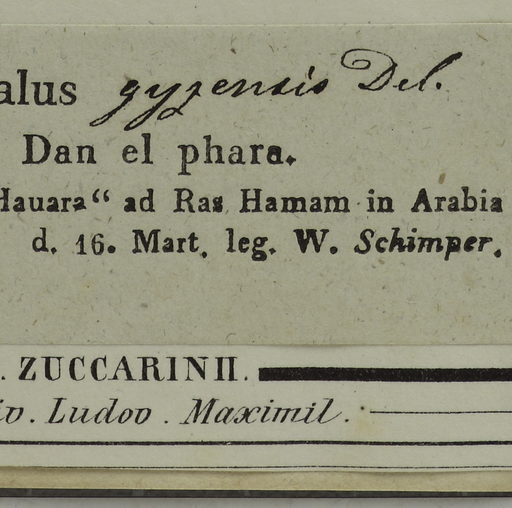 alus gyzensis Del.
Dan el phara.
Hauara“ ad Ras Hamam in Arabia
d. 16. Mart. leg. W. Schimper.
. ZUCCARINII.
iv. Ludov. Maximil.